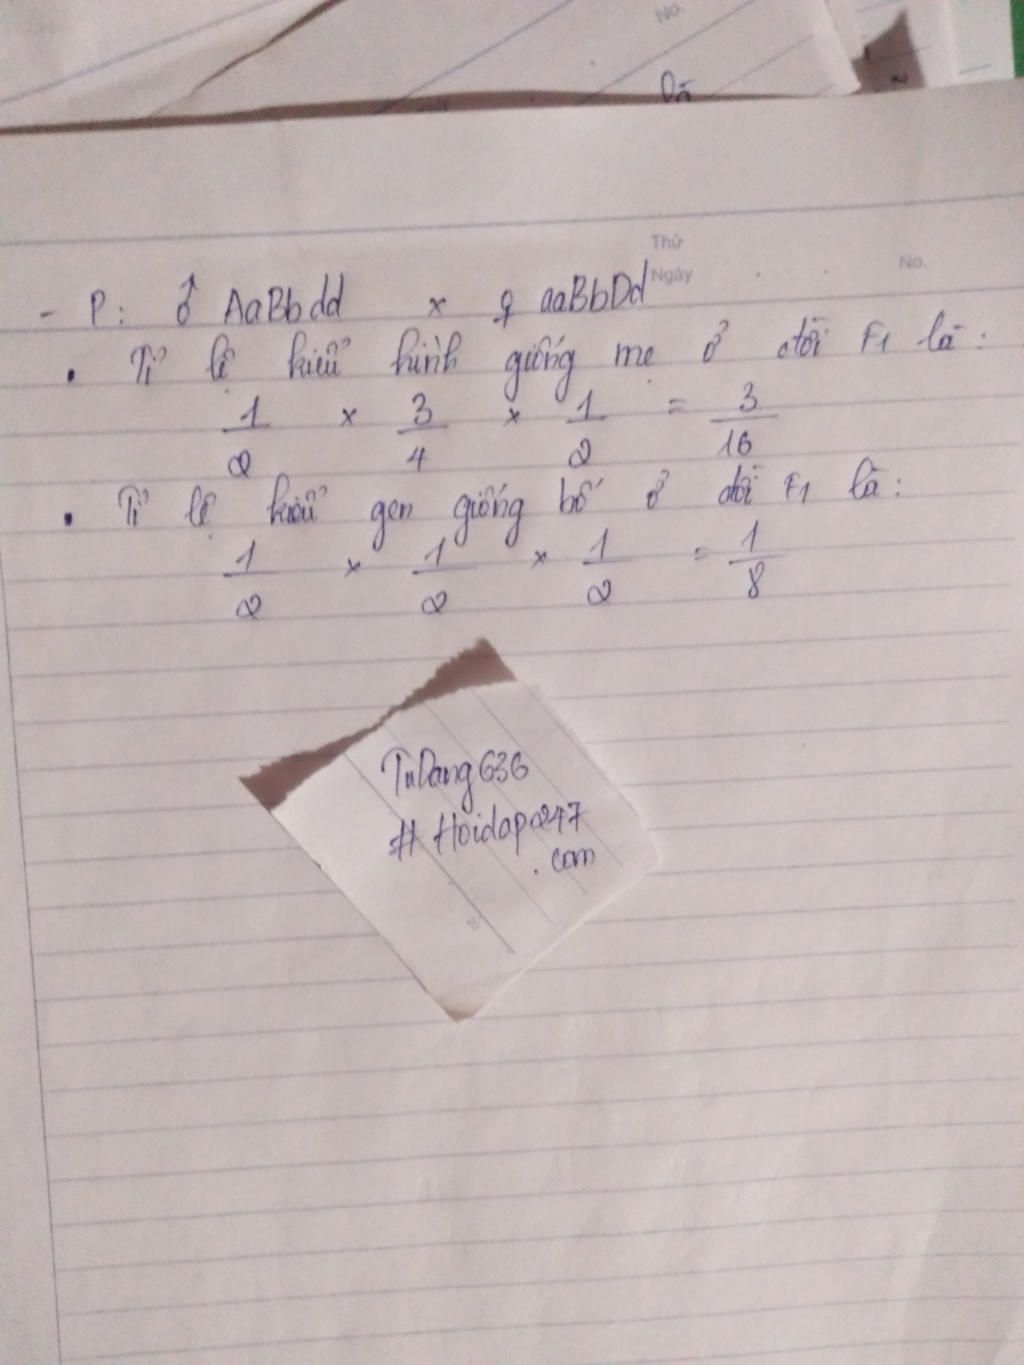 No.
Thứ
Ngày
No.
- P: ♂ AaBbdd x ♀ aaBbDd
• Tỉ lệ kiểu hình giống mẹ ở đời F1 là:
1/2 x 3/4 x 1/2 = 3/16
• Tỉ lệ kiểu gen giống bố ở đời F1 là:
1/2 x 1/2 x 1/2 = 1/8
TuDang636
# Hoidap247
.com